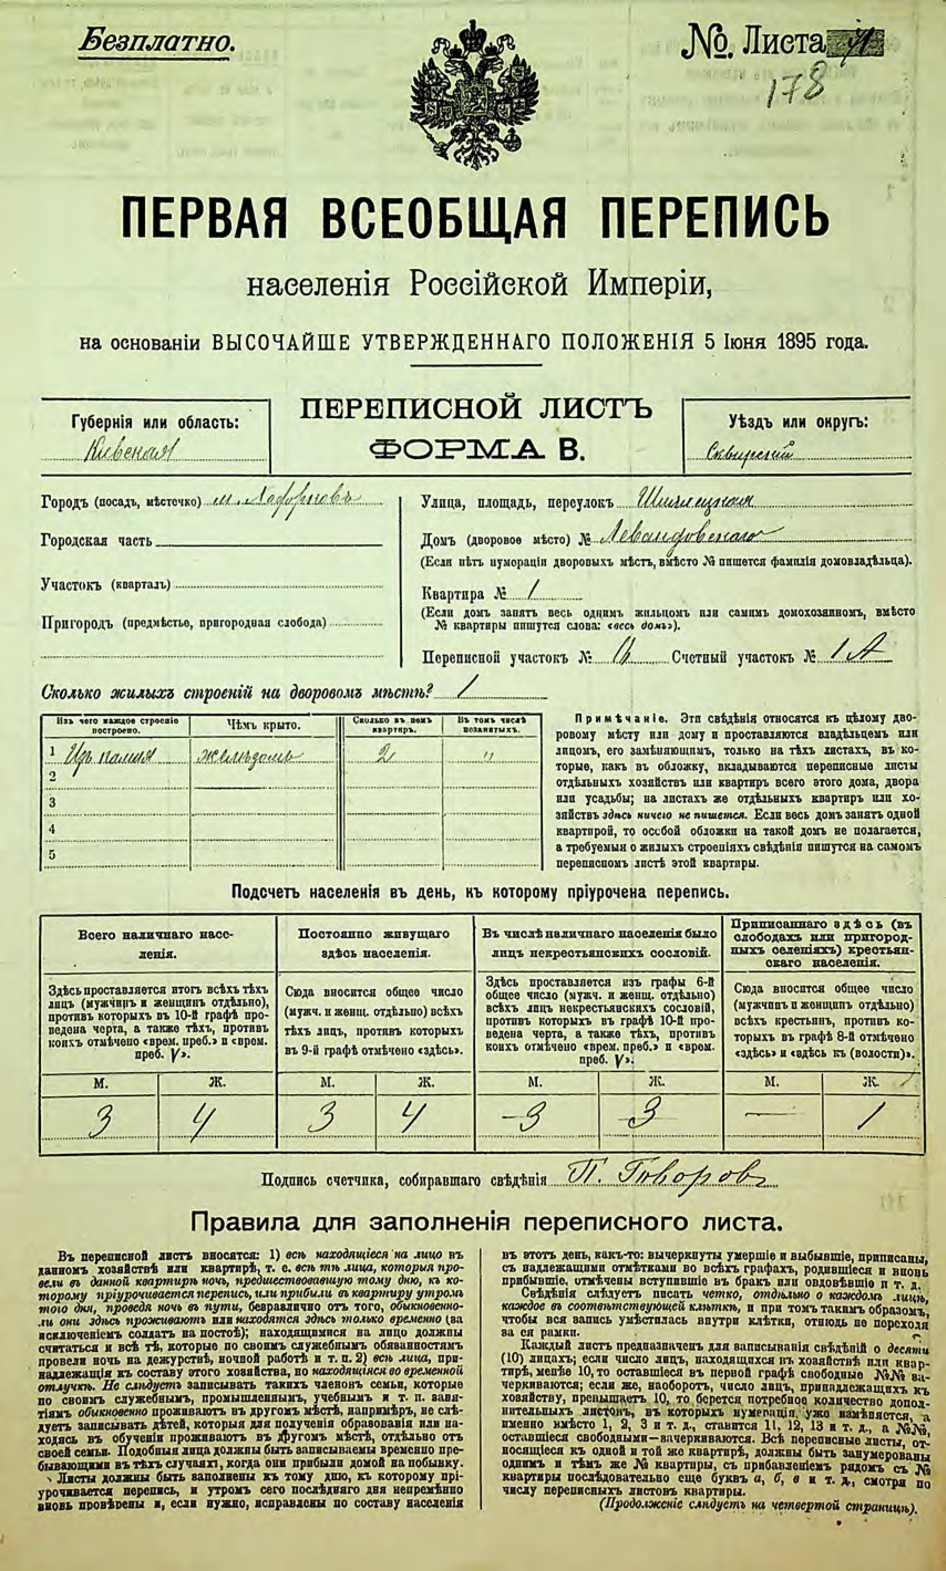 Безплатно.
№. Листа
178
ПЕРВАЯ ВСЕОБЩАЯ ПЕРЕПИСЬ
населенія Россійской Имперіи,
на основаніи ВЫСОЧАЙШЕ УТВЕРЖДЕННАГО ПОЛОЖЕНІЯ 5 Іюня 1895 года.
Губернія или область:
Кіевская
ПЕРЕПИСНОЙ ЛИСТЪ
ФОРМА В.
Уѣздъ или округъ:
Сквирскій
Городъ (посадъ, мѣстечко) м.
Городская часть
Участокъ (кварталъ)
Пригородъ (предмѣстье, пригородная слобода)
Улица, площадь, переулокъ
Домъ (дворовое мѣсто) № Левандовскаго
(Если нѣтъ нумораціи дворовыхъ мѣстъ, вмѣсто № пишется фамилія домовладѣльца).
Квартира № 1
(Если домъ занятъ весь однимъ жильцомъ или самимъ домохозяиномъ, вмѣсто
№ квартиры пишутся слова: «весь домъ»).
Переписной участокъ № Счетный участокъ № 1 А
Сколько жилыхъ строеній на дворовомъ мѣстѣ? 1
Изъ чего каждое строеніе
построено.
Чѣмъ крыто.
Сколько въ немъ
квартиръ.
Въ томъ числѣ
незанятыхъ.
1 Изъ камня желѣзомъ 2 "
2
3
4
5
Примѣчаніе. Эти свѣдѣнія относятся къ цѣлому дво-
ровому мѣсту или дому и проставляются владѣльцемъ или
лицомъ, его замѣняющимъ, только на тѣхъ листахъ, въ ко-
торые, какъ въ обложку, вкладываются переписные листы
отдѣльныхъ хозяйствъ или квартиръ всего этого дома, двора
или усадьбы; на листахъ же отдѣльныхъ квартиръ или хо-
зяйствъ здѣсь ничего не пишется. Если весь домъ занятъ одной
квартирой, то особой обложки на такой домъ не полагается,
а требуемыя о жилыхъ строеніяхъ свѣдѣнія пишутся на самомъ
переписномъ листѣ этой квартиры.
Подсчетъ населенія въ день, къ которому пріурочена перепись.
Всего наличнаго насе-
ленія.
Здѣсь проставляется итогъ всѣхъ тѣхъ
лицъ (мужчинъ и женщинъ отдѣльно),
противъ которыхъ въ 10-й графѣ про-
ведена черта, а также тѣхъ, противъ
коихъ отмѣчено «врем. преб.» и «врем.
преб. V».
Постоянно живущаго
здѣсь населенія.
Сюда вносится общее число
(мужч. и женщ. отдѣльно) всѣхъ
тѣхъ лицъ, противъ которыхъ
въ 9-й графѣ отмѣчено «здѣсь».
Въ числѣ наличнаго населенія было
лицъ некрестьянскихъ сословій.
Здѣсь проставляется изъ графы 6-й
общее число (мужч. и женщ. отдѣльно)
всѣхъ лицъ некрестьянскихъ сословій,
противъ которыхъ въ графѣ 10-й про-
ведена черта, а также тѣхъ, противъ
коихъ отмѣчено «врем. преб.» и «врем.
преб. V».
Приписаннаго здѣсь (въ
слободахъ или пригород-
ныхъ селеніяхъ) крестьян-
скаго населенія.
Сюда вносится общее число
(мужчинъ и женщинъ отдѣльно)
всѣхъ крестьянъ, противъ ко-
торыхъ въ графѣ 8-й отмѣчено
«здѣсь» и «здѣсь къ (волости)».
М. Ж. М. Ж. М. Ж. М. Ж.
3 4 3 4 3 3 — 1
Подпись счетчика, собиравшаго свѣдѣнія П. Говоровъ
Правила для заполненія переписного листа.
Въ переписной листъ вносятся: 1) всѣ находящіеся на лицо въ
данномъ хозяйствѣ или квартирѣ, т. е. всѣ тѣ лица, которыя про-
вели въ данной квартирѣ ночь, предшествовавшую тому дню, къ ко-
торому пріурочивается перепись, или прибыли въ квартиру утромъ
того дня, проведя ночь въ пути, безразлично отъ того, обыкновенно-
ли они здѣсь проживаютъ или находятся здѣсь только временно (за
исключеніемъ солдатъ на постоѣ); находящимися на лицо должны
считаться и всѣ тѣ, которые по своимъ служебнымъ обязанностямъ
провели ночь на дежурствѣ, ночной работѣ и т. п. 2) всѣ лица, при-
надлежащія къ составу этого хозяйства, но находящіяся во временной
отлучкѣ. Не слѣдуетъ записывать такихъ членовъ семьи, которые
по своимъ служебнымъ, промышленнымъ, учебнымъ и т. п. заня-
тіямъ обыкновенно проживаютъ въ другомъ мѣстѣ, напримѣръ, не слѣ-
дуетъ записывать дѣтей, которыя для полученія образованія или на-
ходясь въ обученіи проживаютъ въ другомъ мѣстѣ, отдѣльно отъ
своей семьи. Подобныя лица должны быть записываемы временно пре-
бывающими въ тѣхъ случаяхъ, когда они прибыли домой на побывку.
Листы должны быть заполнены къ тому дню, къ которому прі-
урочивается перепись, и утромъ сего послѣдняго дня непремѣнно
вновь провѣрены и, если нужно, исправлены по составу населенія
въ этотъ день, какъ-то: вычеркнуты умершіе и выбывшіе, приписаны,
съ надлежащими отмѣтками во всѣхъ графахъ, родившіеся и вновь
прибывшіе, отмѣчены вступившіе въ бракъ или овдовѣвшіе и т. д.
Свѣдѣнія слѣдуетъ писать четко, отдѣльно о каждомъ лицѣ,
каждое въ соотвѣтствующей клѣткѣ, и при томъ такимъ образомъ,
чтобы вся запись умѣстилась внутри клѣтки, отнюдь не переходя
за ея рамки.
Каждый листъ предназначенъ для записыванія свѣдѣній о десяти
(10) лицахъ; если число лицъ, находящихся въ хозяйствѣ или квар-
тирѣ, менѣе 10, то оставшіеся въ первой графѣ свободные №№ за-
черкиваются; если же, наоборотъ, число лицъ, принадлежащихъ къ
хозяйству, превышаетъ 10, то берется потребное количество допол-
нительныхъ листовъ, въ которыхъ нумерація ужо измѣняется, а
именно вмѣсто 1, 2, 3 и т. д., ставится 11, 12, 13 и т. д., а №№,
оставшіеся свободными—зачеркиваются. Всѣ переписные листы, от-
носящіеся къ одной и той же квартирѣ, должны быть занумерованы
однимъ и тѣмъ же № квартиры, съ прибавленіемъ рядомъ съ №
квартиры послѣдовательно еще буквъ а, б, в и т. д., смотря по
числу переписныхъ листовъ квартиры.
(Продолженіе слѣдуетъ на четвертой страницѣ).